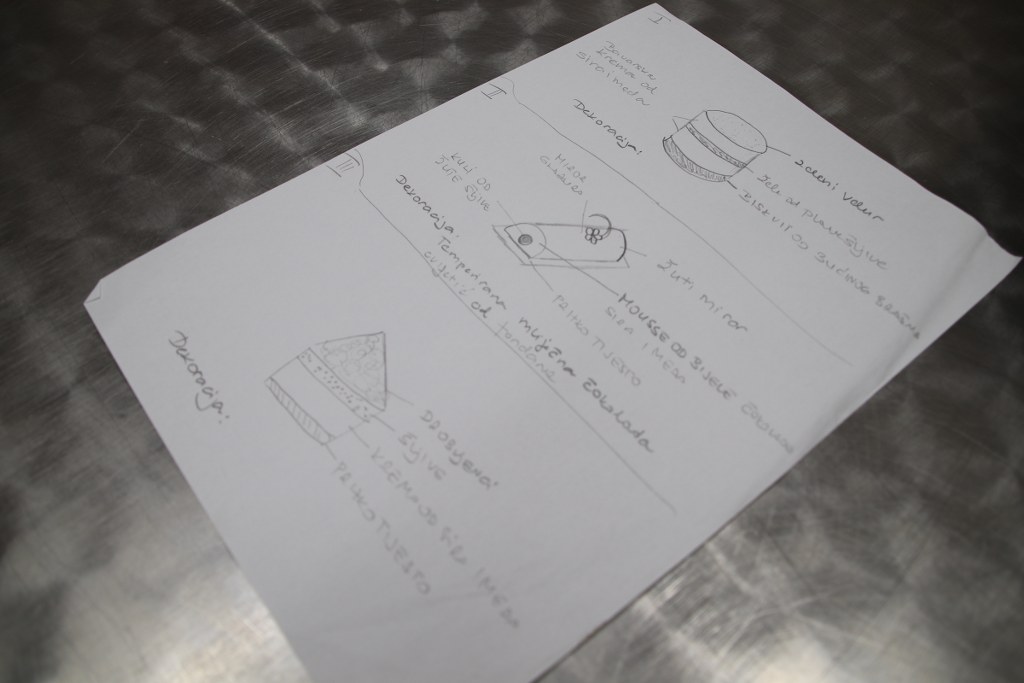 I
krema od
sira i meda
Dekoracija:
zeleni velur
Žele od plave šljive
BISKVIT OD BUČINOG BRAŠNA
II
KULI OD
ŽUTE ŠLJIVE
MIROR
Žuti miror
MOUSSE OD BIJELE ČOKOLADE
SIRA I MEDA
PRHKO TIJESTO
Dekoracija: Temperirana mliječna čokolada
cvjetić od fondana
III
Dekoracija:
ŠLJIVE
KREMA OD SIRA I MEDA
PRHKO TIJESTO